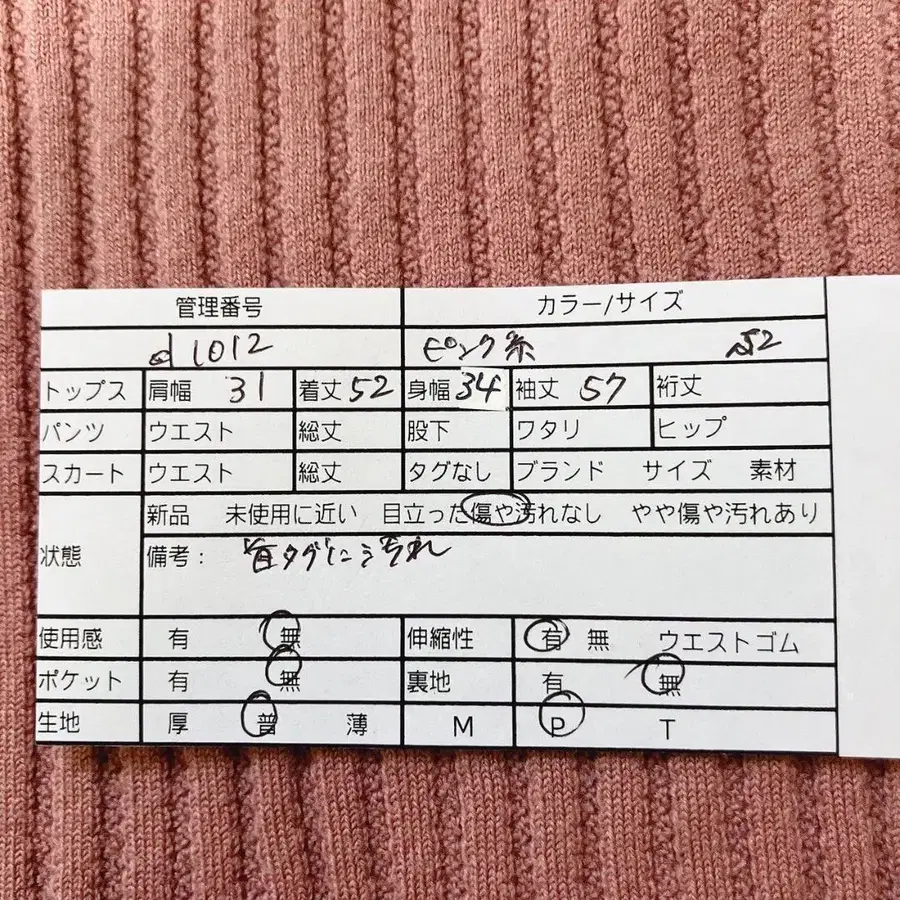 管理番号 カラー/サイズ
d1012 ピンク系 52
トップス 肩幅 31 着丈 52 身幅 34 袖丈 57 裄丈
パンツ ウエスト 総丈 股下 ワタリ ヒップ
スカート ウエスト 総丈 タグなし ブランド サイズ 素材
新品 未使用に近い 目立った傷や汚れなし やや傷や汚れあり
状態 備考: 首タグに汚れ
使用感 有 無 伸縮性 有 無 ウエストゴム
ポケット 有 無 裏地 有 無
生地 厚 普 薄 M P T